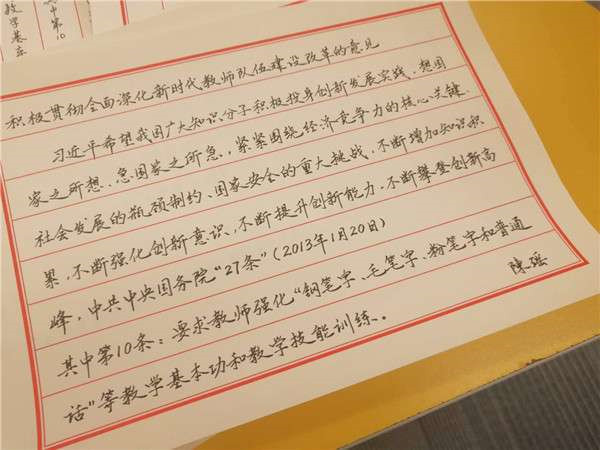 教学基本
中第10
积极贯彻全面深化新时代教师队伍建设改革的意见
习近平希望我国广大知识分子积极投身创新发展实践，想国
家之所想、急国家之所急，紧紧围绕经济竞争力的核心关键、
社会发展的瓶颈制约、国家安全的重大挑战，不断增加知识积
累，不断强化创新意识，不断提升创新能力，不断攀登创新高
峰，中共中央国务院“27条”(2013年1月20日)
其中第10条：要求教师强化“钢笔字、毛笔字、粉笔字和普通
话”等教学基本功和教学技能训练。
陈瑶